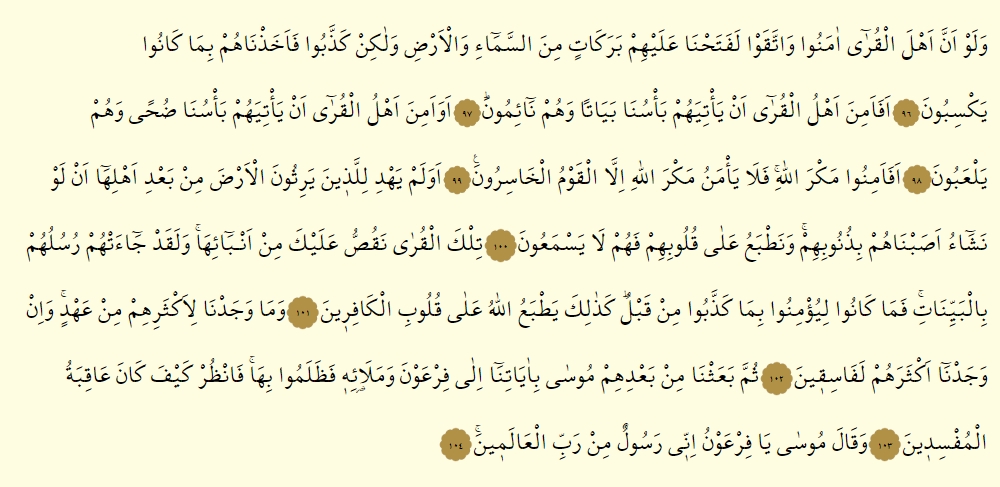 وَلَوْ اَنَّ اَهْلَ الْقُرٰٓى اٰمَنُوا وَاتَّقَوْا لَفَتَحْنَا عَلَيْهِمْ بَرَكَاتٍ مِنَ السَّمَٓاءِ وَالْاَرْضِ وَلٰكِنْ كَذَّبُوا فَاَخَذْنَاهُمْ بِمَا كَانُوا
يَكْسِبُونَ ﴿٩٦﴾ اَفَاَمِنَ اَهْلُ الْقُرٰٓى اَنْ يَأْتِيَهُمْ بَأْسُنَا بَيَاتًا وَهُمْ نَٓائِمُونَۜ ﴿٩٧﴾ اَوَاَمِنَ اَهْلُ الْقُرٰٓى اَنْ يَأْتِيَهُمْ بَأْسُنَا ضُحًى وَهُمْ
يَلْعَبُونَ ﴿٩٨﴾ اَفَاَمِنُوا مَكْرَ اللّٰهِۚ فَلَا يَأْمَنُ مَكْرَ اللّٰهِ اِلَّا الْقَوْمُ الْخَاسِرُونَ۟ ﴿٩٩﴾ اَوَلَمْ يَهْدِ لِلَّذ۪ينَ يَرِثُونَ الْاَرْضَ مِنْ بَعْدِ اَهْلِهَٓا اَنْ لَوْ
نَشَٓاءُ اَصَبْنَاهُمْ بِذُنُوبِهِمْۚ وَنَطْبَعُ عَلٰى قُلُوبِهِمْ فَهُمْ لَا يَسْمَعُونَ ﴿١٠٠﴾ تِلْكَ الْقُرٰى نَقُصُّ عَلَيْكَ مِنْ اَنْبَٓائِهَاۚ وَلَقَدْ جَٓاءَتْهُمْ رُسُلُهُمْ
بِالْبَيِّنَاتِۚ فَمَا كَانُوا لِيُؤْمِنُوا بِمَا كَذَّبُوا مِنْ قَبْلُۜ كَذٰلِكَ يَطْبَعُ اللّٰهُ عَلٰى قُلُوبِ الْكَافِر۪ينَ ﴿١٠١﴾ وَمَا وَجَدْنَا لِاَكْثَرِهِمْ مِنْ عَهْدٍۚ وَاِنْ
وَجَدْنَٓا اَكْثَرَهُمْ لَفَاسِق۪ينَ ﴿١٠٢﴾ ثُمَّ بَعَثْنَا مِنْ بَعْدِهِمْ مُوسٰى بِاٰيَاتِنَٓا اِلٰى فِرْعَوْنَ وَمَلَا۬ئِه۪ فَظَلَمُوا بِهَاۚ فَانْظُرْ كَيْفَ كَانَ عَاقِبَةُ
الْمُفْسِد۪ينَ ﴿١٠٣﴾ وَقَالَ مُوسٰى يَا فِرْعَوْنُ اِنّ۪ي رَسُولٌ مِنْ رَبِّ الْعَالَم۪ينَۚ ﴿١٠٤﴾